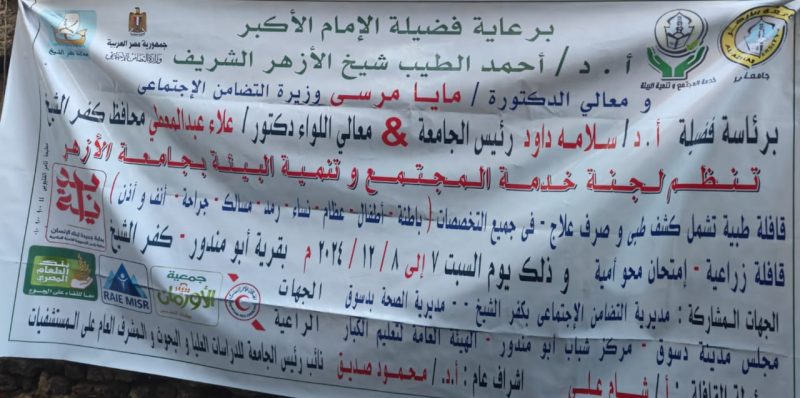 برعاية فضيلة الإمام الأكبر
أ . د / أحمد الطيب شيخ الأزهر الشريف
و معالي الدكتورة / مايا مرسى وزيرة التضامن الإجتماعى
برئاسة فضيلة أ . د / سلامه داود رئيس الجامعة & معالي اللواء دكتور / علاء عبدالمعطي محافظ كفر الشيخ
تنظم لجنة خدمة المجتمع و تنمية البيئة بجامعة الأزهر
قافلة طبية تشمل كشف طبى و صرف علاج - فى جميع التخصصات ( باطنة - أطفال - عظام - نساء - رمد - مسالك - جراحة - أنف و أذن )
قافلة زراعية - إمتحان محو أمية و ذلك يوم السبت ٧ إلى ٨ / ١٢ / ٢٠٢٤ م بقرية أبو مندور - كفر الشيخ
الجهات المشاركة : مديرية التضامن الإجتماعى بكفر الشيخ - مديرية الصحة بدسوق
مجلس مدينة دسوق - مركز شباب أبو مندور - الهيئة العامة لتعليم الكبار
الجهات الراعية
اشراف عام : أ.د. / محمود صديق نائب رئيس الجامعة للدراسات العليا و البحوث و المشرف العام على المستشفيات
القافلة : أ / شام على
جمهورية مصر العربية
وزارة التضامن الاجتماعي
خدمة المجتمع و تنمية البيئة
جامعة الأزهر
بداية جديدة لبناء الإنسان
بنك الطعام المصري
معا للقضاء على الجوع
RAIE MISR
جمعية الأورمان